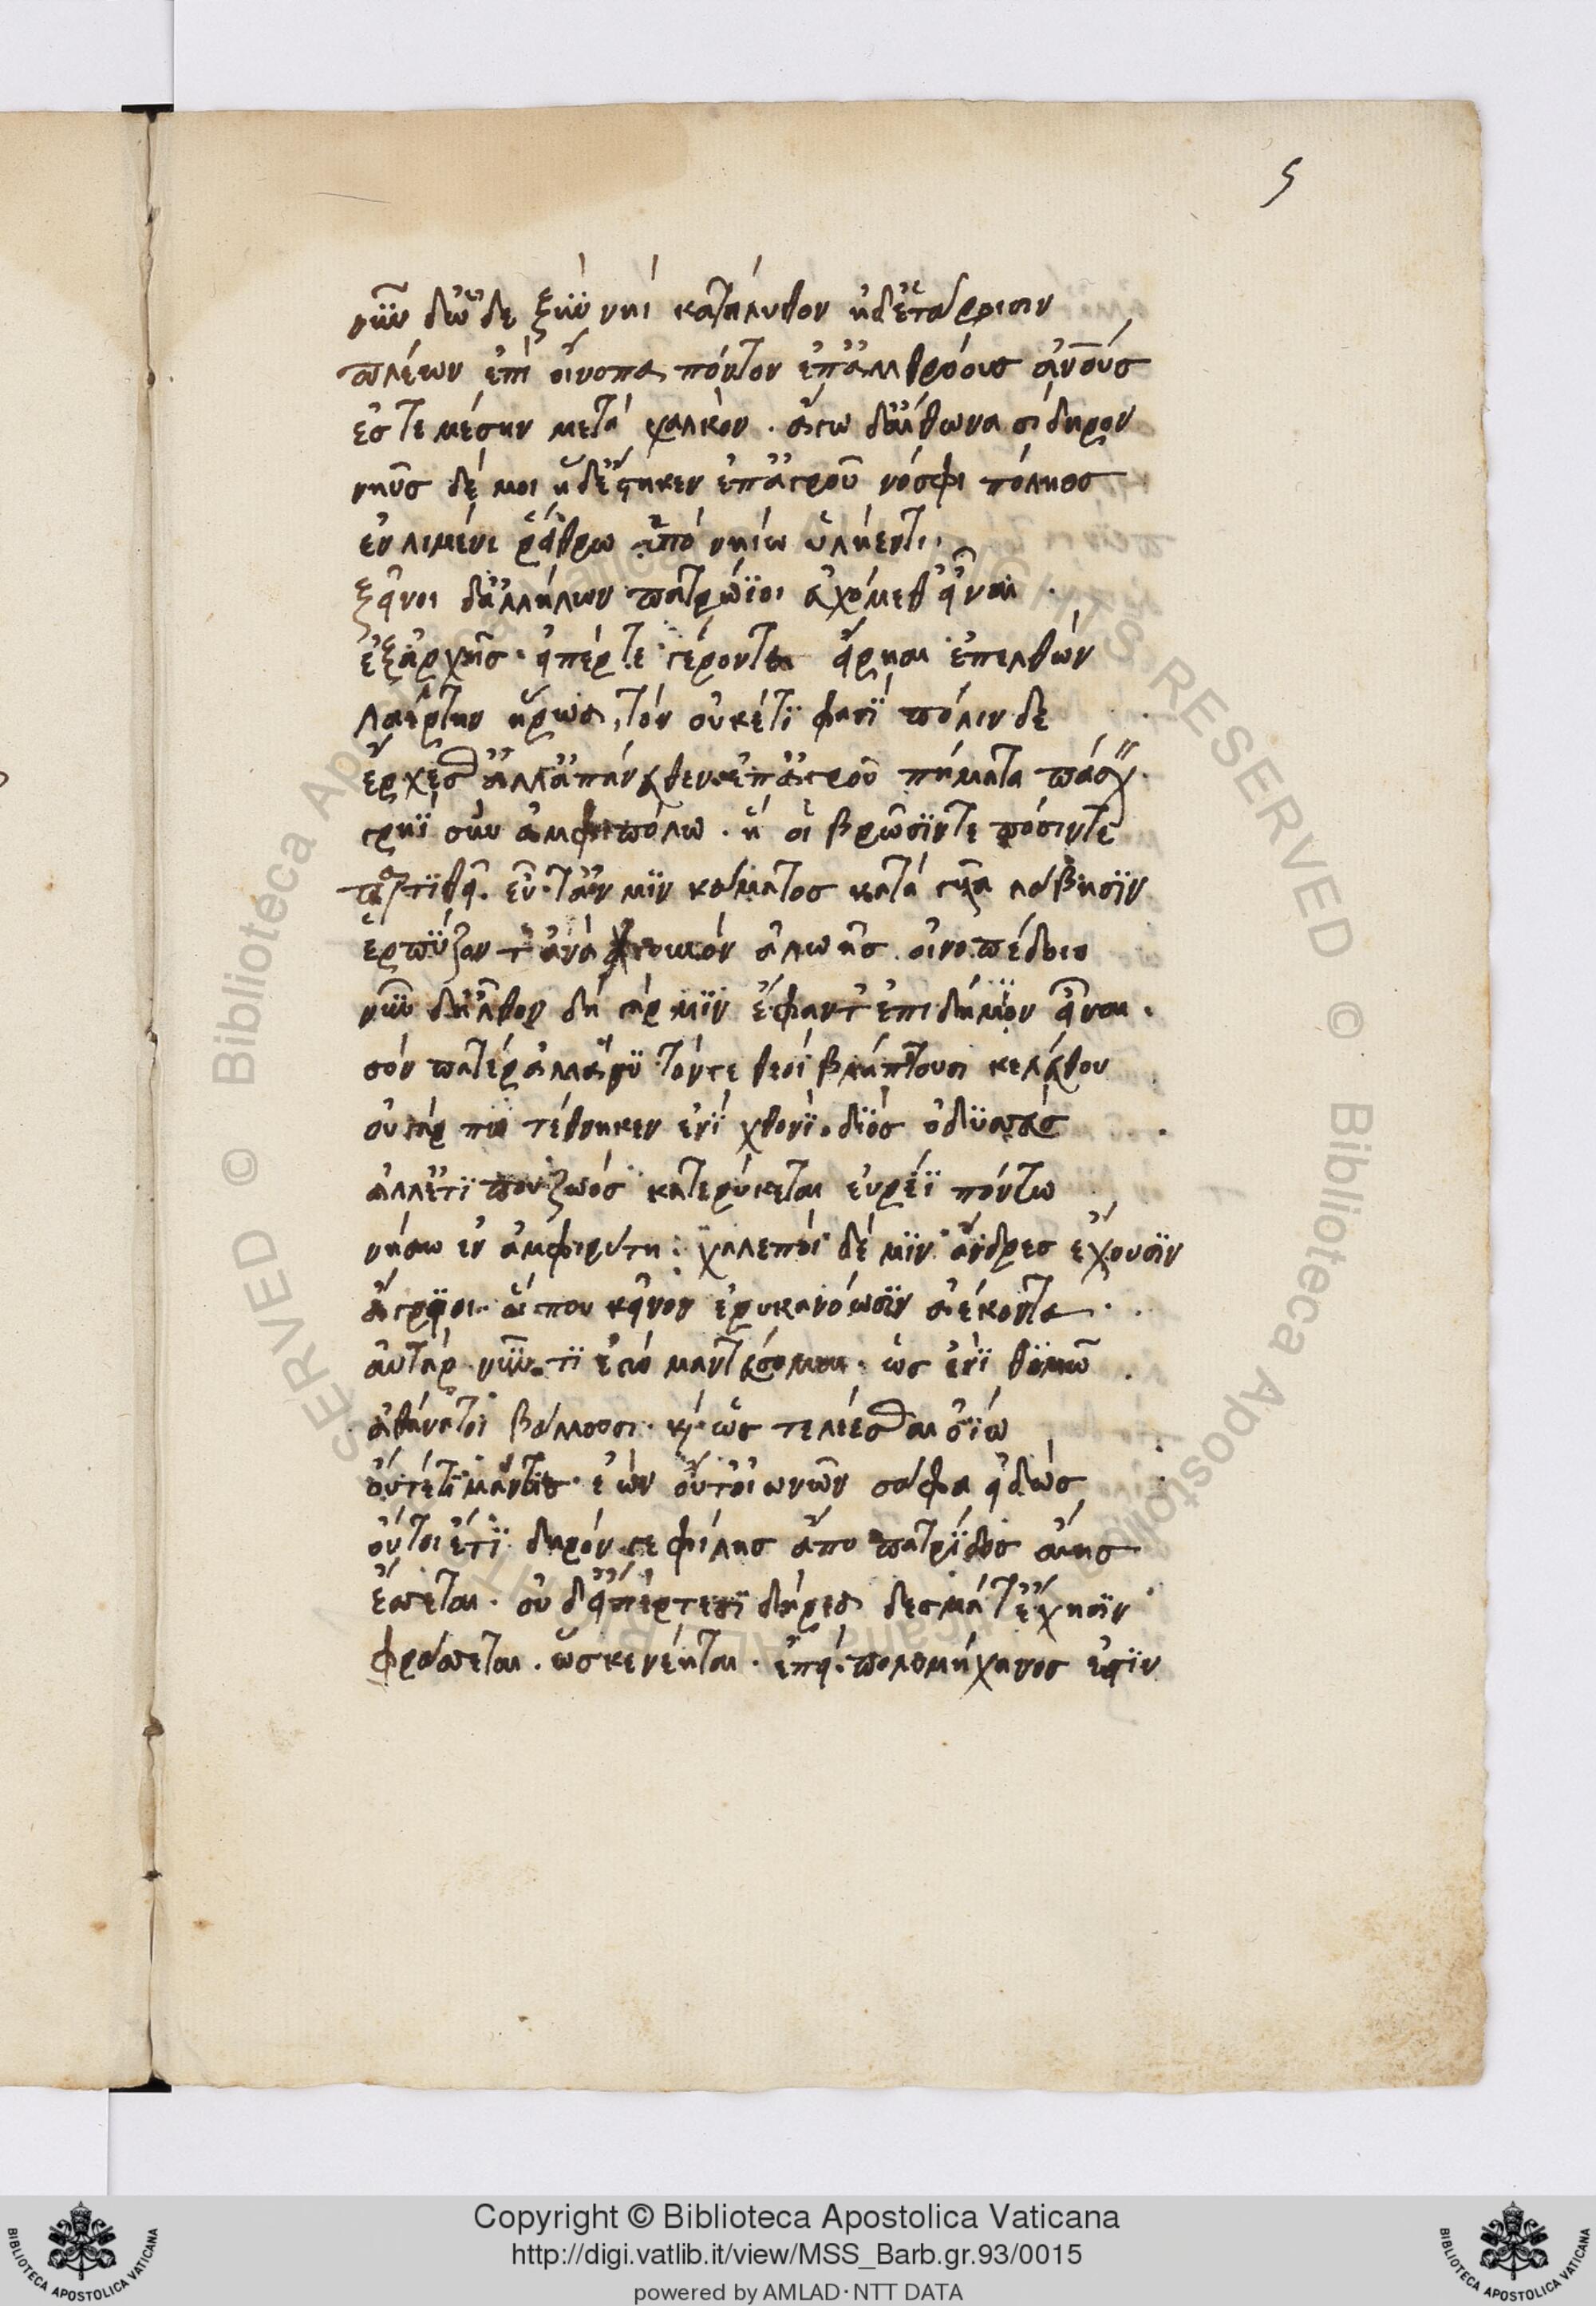 5
νῦν δ' ὧδε ξὺν νηῒ κατήλυθον ἠδ' ἑτάροισιν
πλέων ἐπὶ οἴνοπα πόντον ἐπ' ἀλλοθρόους ἀνους
ἐς τε μέσην μετὰ χαλκόν . ἄγω δ' αἴθωνα σίδηρον
νηῦς δέ μοι ἥδ' ἕστηκεν ἐπ' ἀγροῦ νόσφι πόληος
ἐν λιμένι ῥείθρω ὑπὸ νηίω ὑλήεντι .
ξεῖνοι δ' ἀλλήλων πατρώϊοι εὐχόμεθ' εἶναι .
ἐξ ἀρχῆς . εἴπέρ τε γέροντα εἴρηαι ἐπελθὼν
λαέρτην ἥρωα , τὸν οὐκέτϊ φασῒ πόλιν δε
ἔρχεσθ' ἀλλ' ἀπάνευθεν ἐπ' ἀγροῦ πήματα πάσχ
γρηῒ σὺν ἀμφιπόλω . ἥ οἱ βρῶσΐν τε πόσιν τε
παρτϊθεῖ . εὖτ' ἄν μϊν κάματος κατὰ γυῖα λάβησϊν
ἑρπύζοντ' ἀνὰ γουνὸν ἀλωῆς οἰνοπέδοιο
νῦν δ' ἦλθον δὴ γάρ μϊν ἔφαντ' ἐπιδήμϊον εἶναι .
σὸν πατέρ' ἀλλά νϋ τόν γε θεοὶ βλάπτουσι κελεύθου
οὐ γάρ πω τέθνηκεν ἐπῒ χθονῒ . δῖος ὀδϋσσεύς
ἀλλ' ἔτϊ που ζωὸς κατερύκεται εὐρέϊ πόντω
νήσω ἐν ἀμφιρύτη : χαλεποὶ δέ μϊν ἄνδρες ἔχουσϊν
ἄγρϊοι . οἵ που κεῖνον ἐρυκανόωσϊν ἀέκοντα .
αὐτὰρ νῦν . τϊ ἐγὼ μαντεύσομαι . ὡς ἐνῒ θϋμῶ
ἀθάνατοι βάλλουσι . κὶ ὡς τελέεσθαι ὀΐω
οὔτέ τϊ μάντϊς . ἐὼν οὔτ' οἰωνῶν σάφα εἰδὼς
οὔτοι ἔτϊ δηρόν γε φίλης ἄπο πατρΐδος αἴης
ἔσσεται . οὐδ' εἴπέρ τε σϊδήρεα δεσμάτ' ἔχησϊν
φράσσεται . ὥς κε νέηται . ἐπεὶ πολυμήχανος ἐστϊν
Copyright © Biblioteca Apostolica Vaticana
http://digi.vatlib.it/view/MSS_Barb.gr.93/0015
powered by AMLAD · NTT DATA